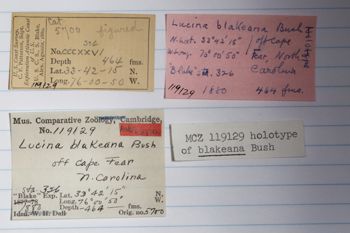 Cat.
5700 figured
326
No. CCCXXVI
Depth 464 fms.
Lat. 33-42-15 N.
Long. 76-00-50 W.
119129
Lucina blakeana Bush
N. Lat. 33° 42' 15" off Cape
W. Long. 76° 00' 50" Fear, North
"Blake" Sta. 326 Carolina
119129 1880 464 fms.
Mus. Comparative Zoology, Cambridge,
No. 119129
Lucina blakeana Bush
off Cape Fear
N. Carolina
Sta. 326
"Blake" Exp. Lat. 33° 42' 15" N.
1877-78 Long. 76° 00' 50" W.
1880 Depth 464 fms.
Idnt. W. H. Dall Orig. no. 5700
MCZ 119129 holotype
of blakeana Bush